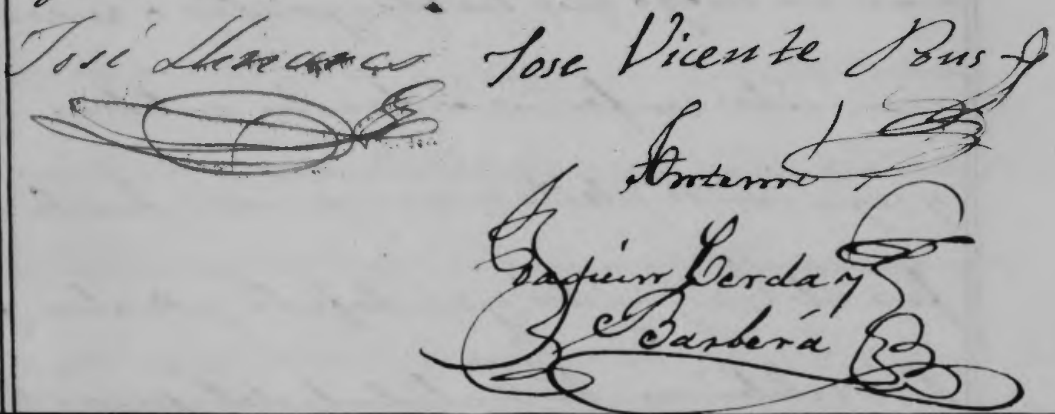 José Jose Vicente Pons
Ante mi
Joaquin Cerda y
Barberá